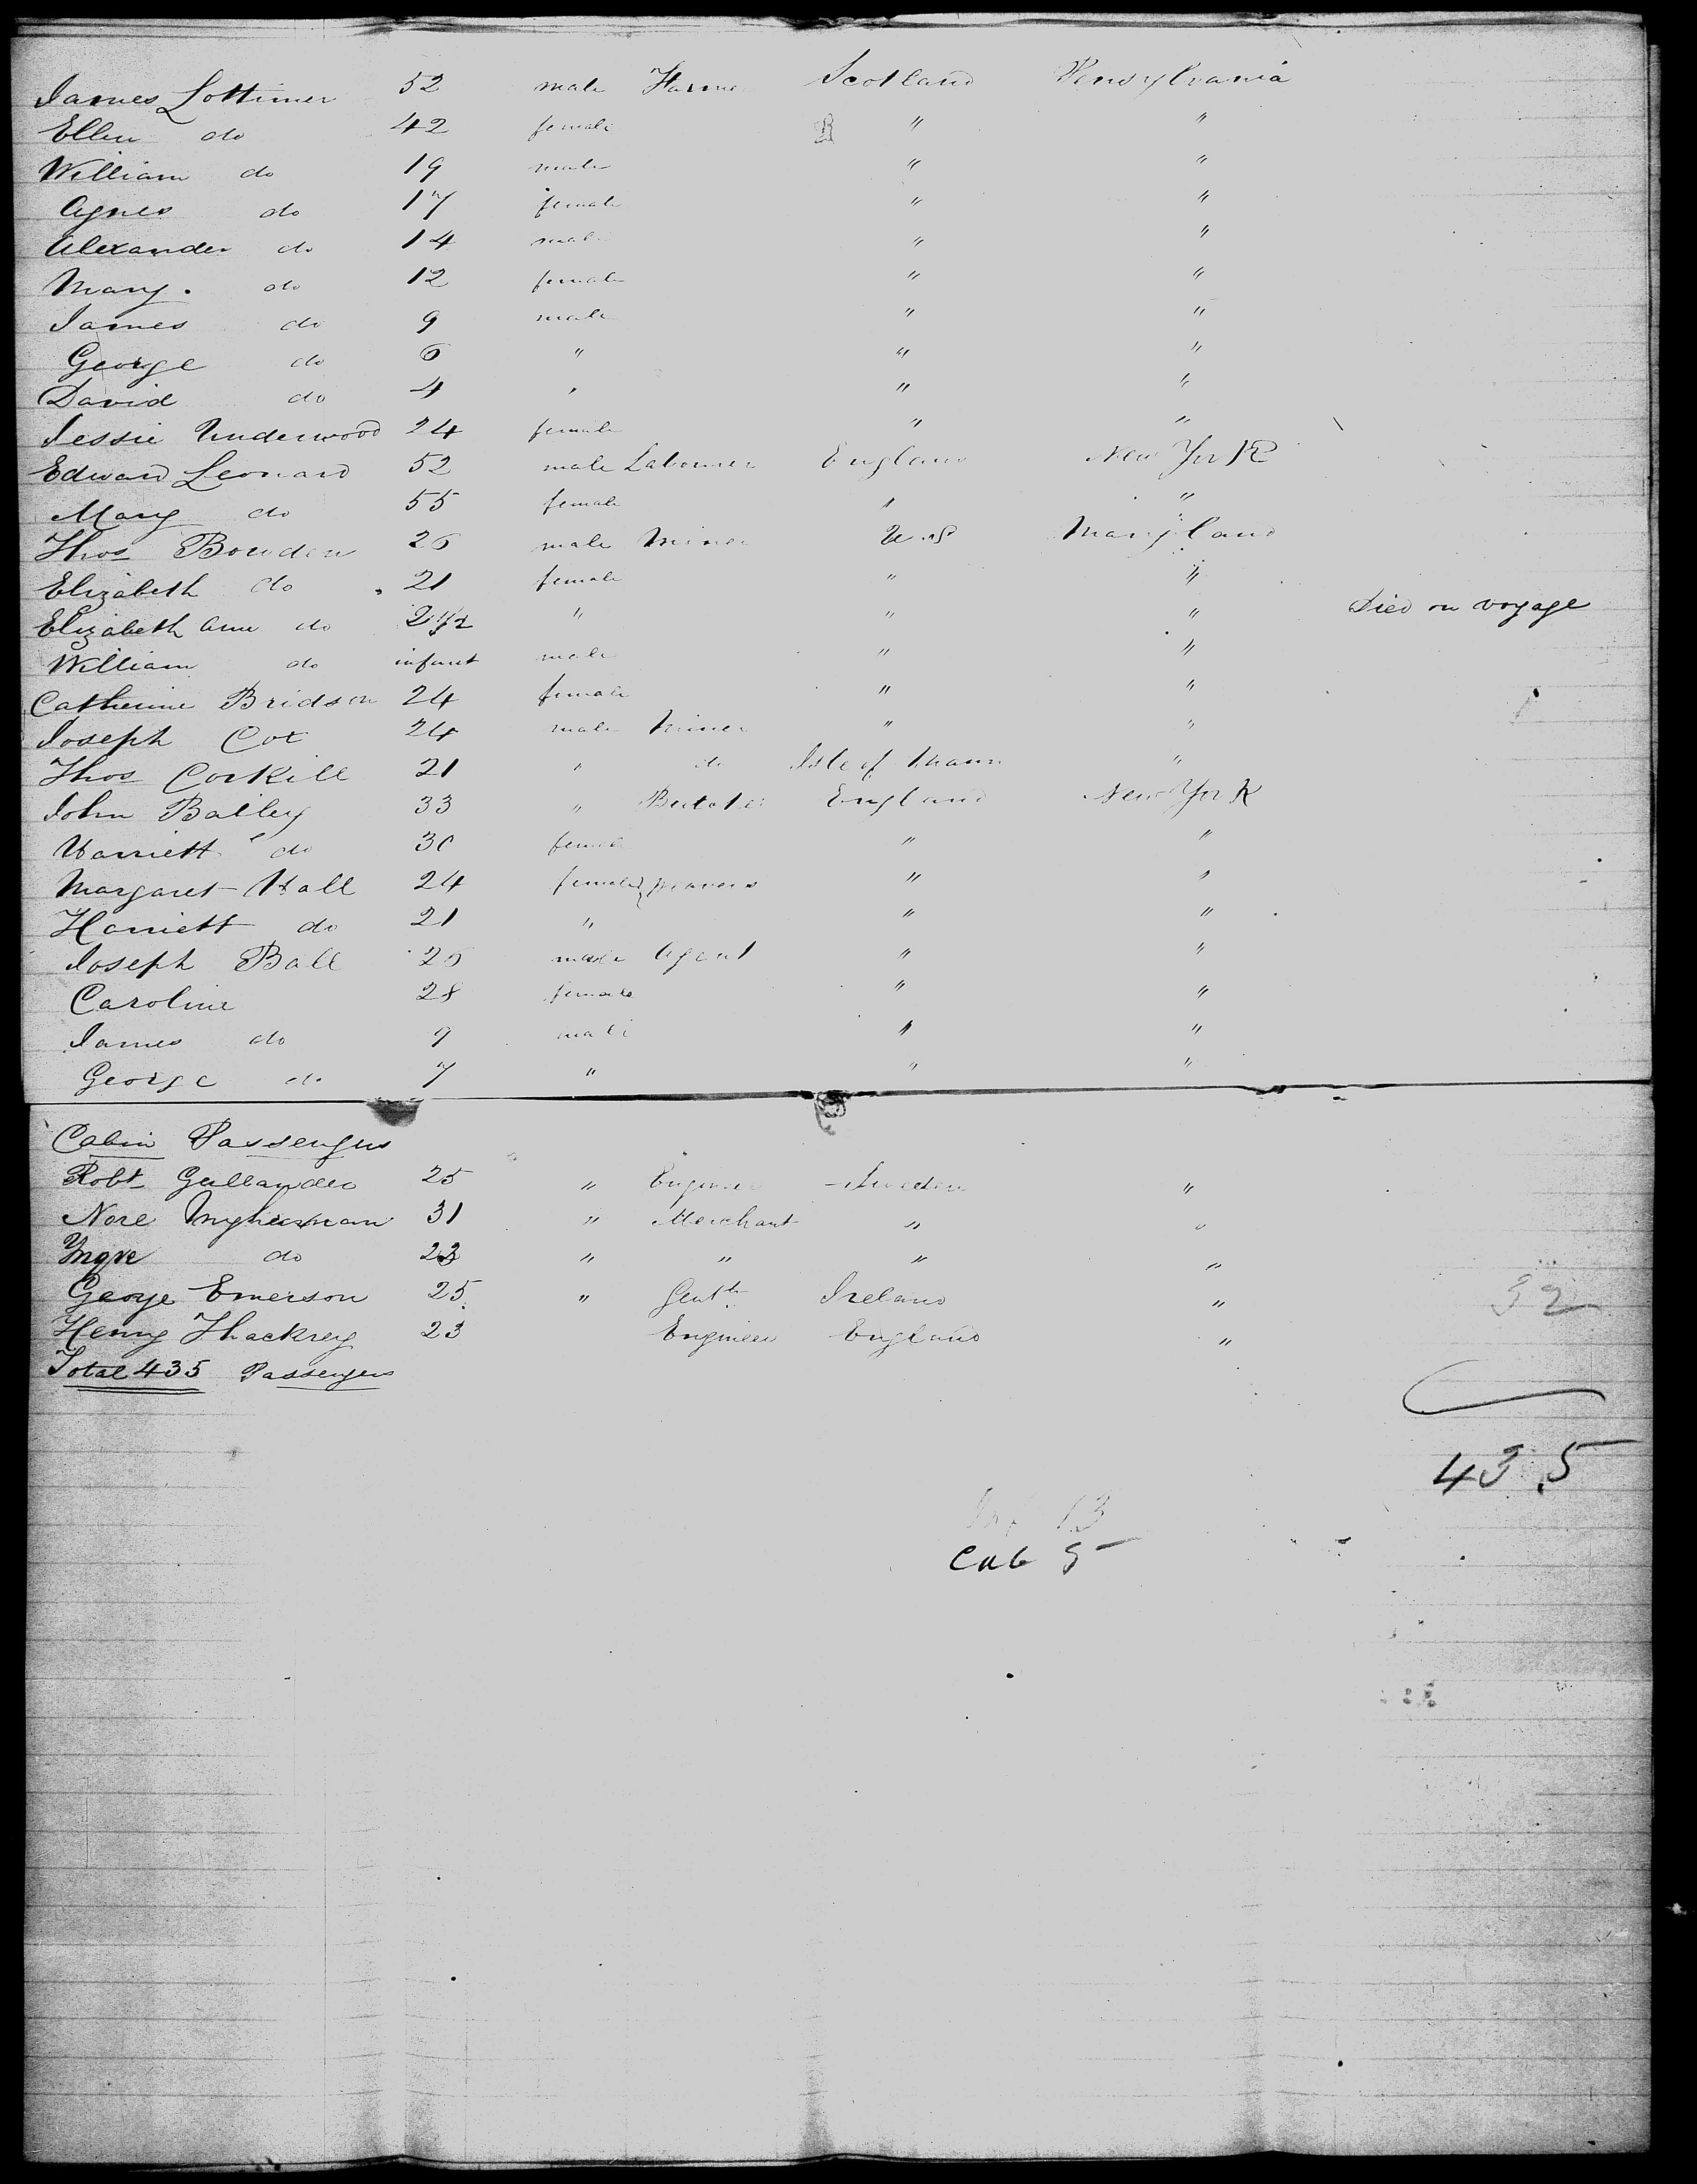 James Lottimer 52 male Farmer Scotland Pensylvania
Ellen do 42 female " "
William do 19 male " "
Agnes do 17 female " "
Alexander do 14 male " "
Mary. do 12 female " "
James do 9 male " "
George do 6 " " "
David do 4 " " "
Jessie Underwood 24 female " "
Edward Leonard 52 male Labourer England New York
Mary do 55 female " "
Thos Bowden 26 male Miner U.S Maryland
Elizabeth do 21 female " "
Elizabeth Ann do 2 1/2 " " " Died on voyage
William do infant male " "
Catherine Bridson 24 female " "
Joseph Cox 24 male Miner " "
Thos Corkill 21 " do Isle of Mann "
John Bailey 33 " Butcher England New York
Harriett do 30 female " "
Margaret Hall 24 female " "
Harriett do 21 " " "
Joseph Ball 26 male Agent " "
Caroline 28 female " "
James do 9 male " "
George do 7 " " "
Cabin Passengers
Robt 25 " Engineer Sweden "
31 " Merchant " "
do 23 " " " "
George Emerson 25 " Ireland " 32
Henry Thackrey 23 Engineer England "
Total 435 Passengers
435
Inf 13
Cab 5